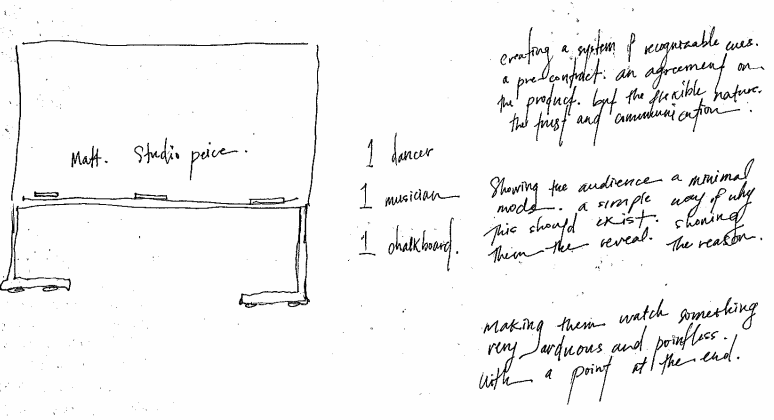 Matt. Studio peice.
1 dancer
1 musician
1 chalkboard.
creating a system of recognizable cues.
a pre-contract. an agreement on
the product. but the flexible nature.
the trust and communication.
Showing the audience a minimal
mode. a simple way of why
this should exist. showing
them the reveal. the reason.
making them watch something
very arduous and pointless.
with a point at the end.